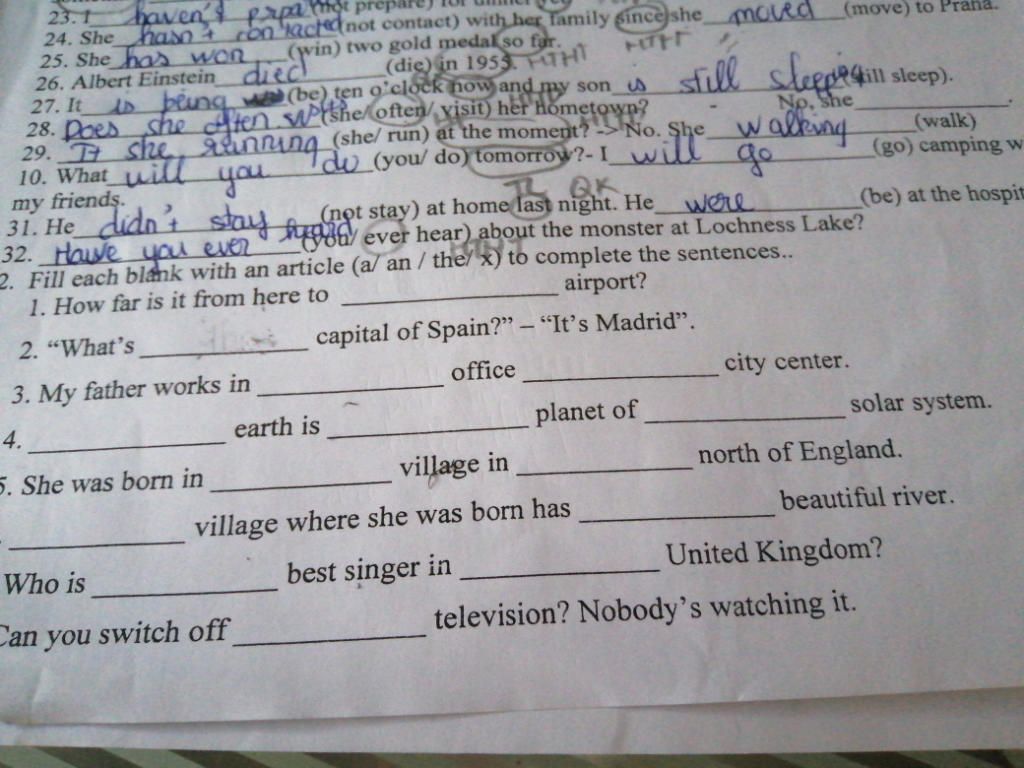 23. I haven't (not prepare) for dinner yet
24. She hasn't contacted (not contact) with her family since she moved (move) to Praha.
25. She has won (win) two gold medal so far. HTHT
26. Albert Einstein died (die) in 1955. HTHT
27. It is being (be) ten o'clock now and my son is still sleeping (still sleep).
28. Does she often visits (she/ often/ visit) her hometown? - No, she ____.
29. It she running (she/ run) at the moment? -> No. She walking (walk)
10. What will you do (you/ do) tomorrow? - I will go (go) camping w
my friends. TL QK
31. He didn't stay (not stay) at home last night. He were (be) at the hospit
32. Hawe you ever heard (you/ ever hear) about the monster at Lochness Lake? HTHT
2. Fill each blank with an article (a/ an / the/ x) to complete the sentences..
1. How far is it from here to ____ airport?
2. “What's ____ capital of Spain?” – “It's Madrid”.
3. My father works in ____ office ____ city center.
4. ____ earth is ____ planet of ____ solar system.
5. She was born in ____ village in ____ north of England.
____ village where she was born has ____ beautiful river.
Who is ____ best singer in ____ United Kingdom?
Can you switch off ____ television? Nobody's watching it.